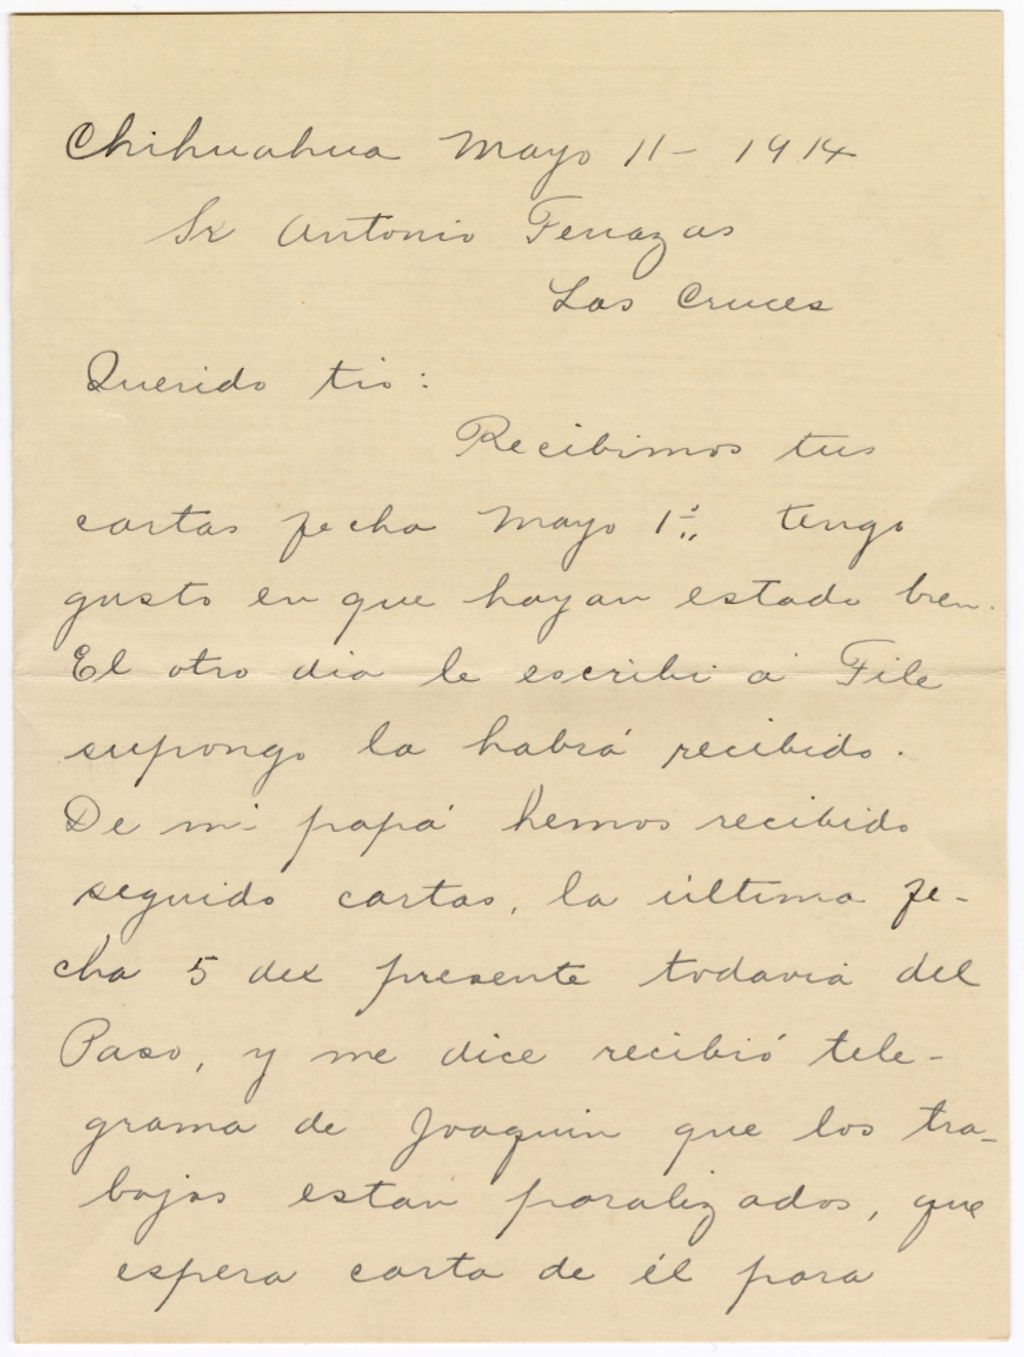 Chihuahua Mayo 11 - 1914
Sr Antonio Terrazas
Las Cruces
Querido tio:
Recibimos tus
cartas fecha Mayo 1º,, tengo
gusto en que hayan estado bien.
El otro dia le escribi á File
supongo la habrá recibido.
De mi papá hemos recibido
seguido cartas, la última fe-
cha 5 del presente todavia del
Paso, y me dice recibió tele-
grama de Joaquin que los tra-
bajos estan paralizados, que
espera carta de él para